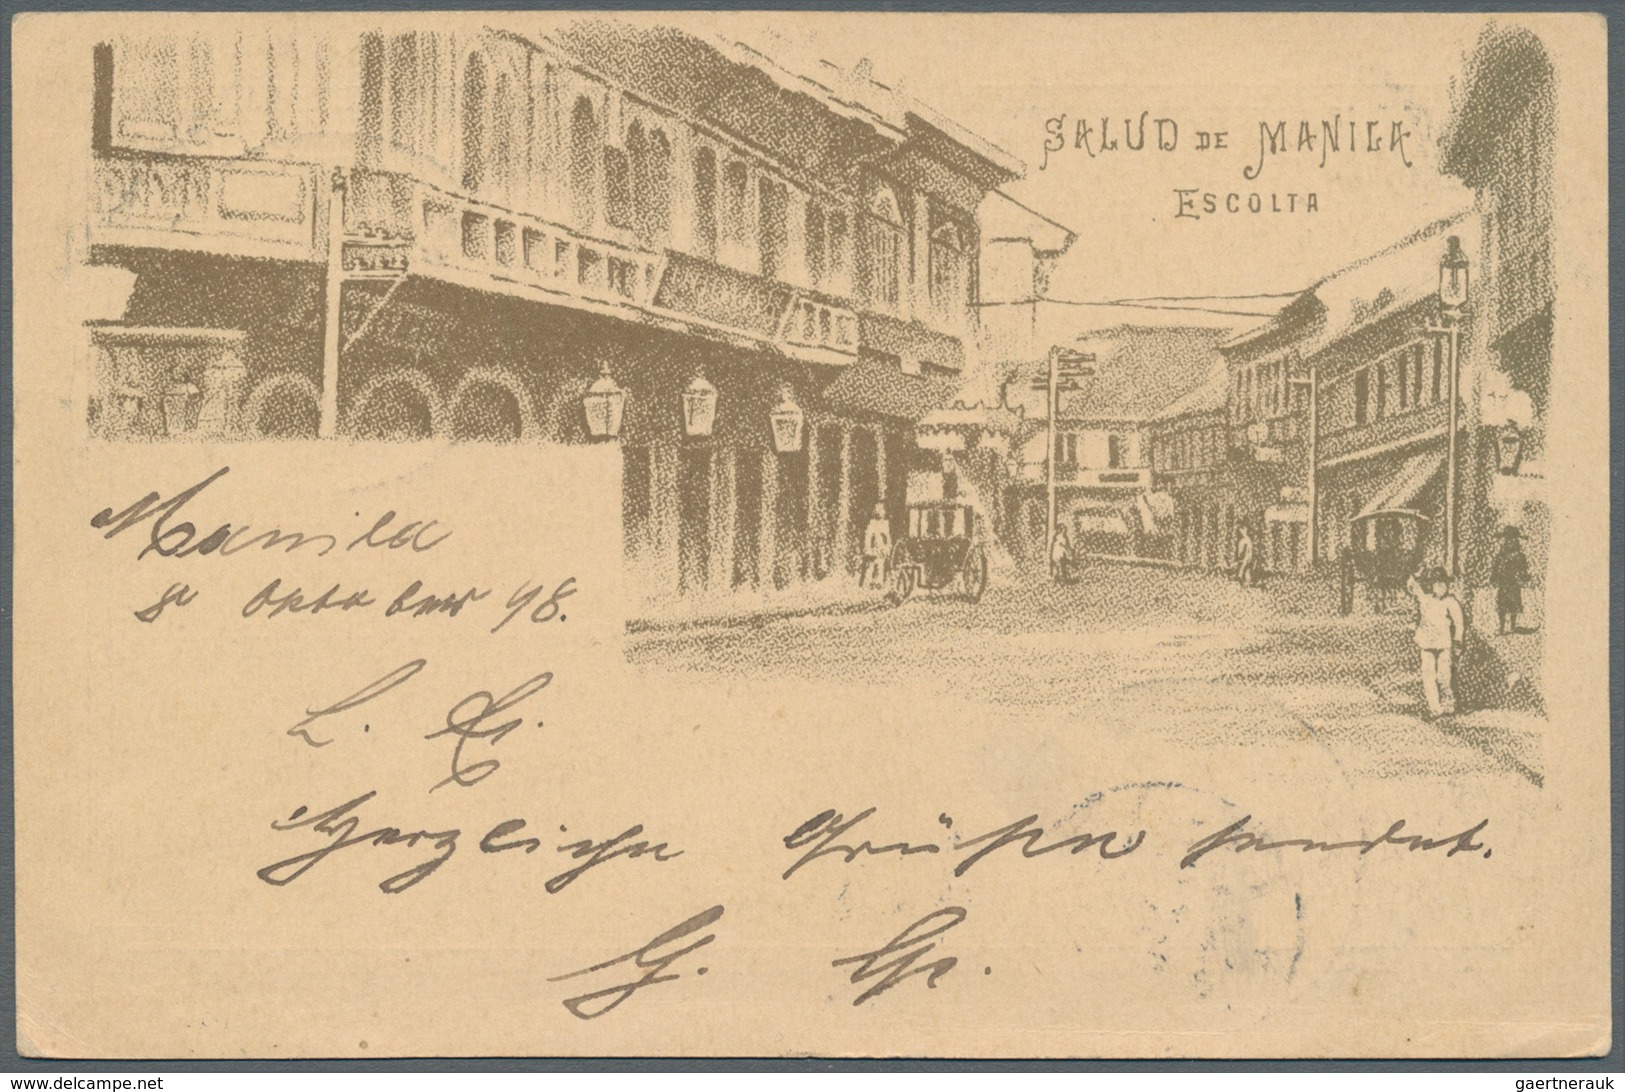 SALUD DE MANILA
ESCOLTA
Manila
8 Oktober 98.
L. 
Herzliche Grüße sendet.
G. 
delcampe.net
gaertnerauk